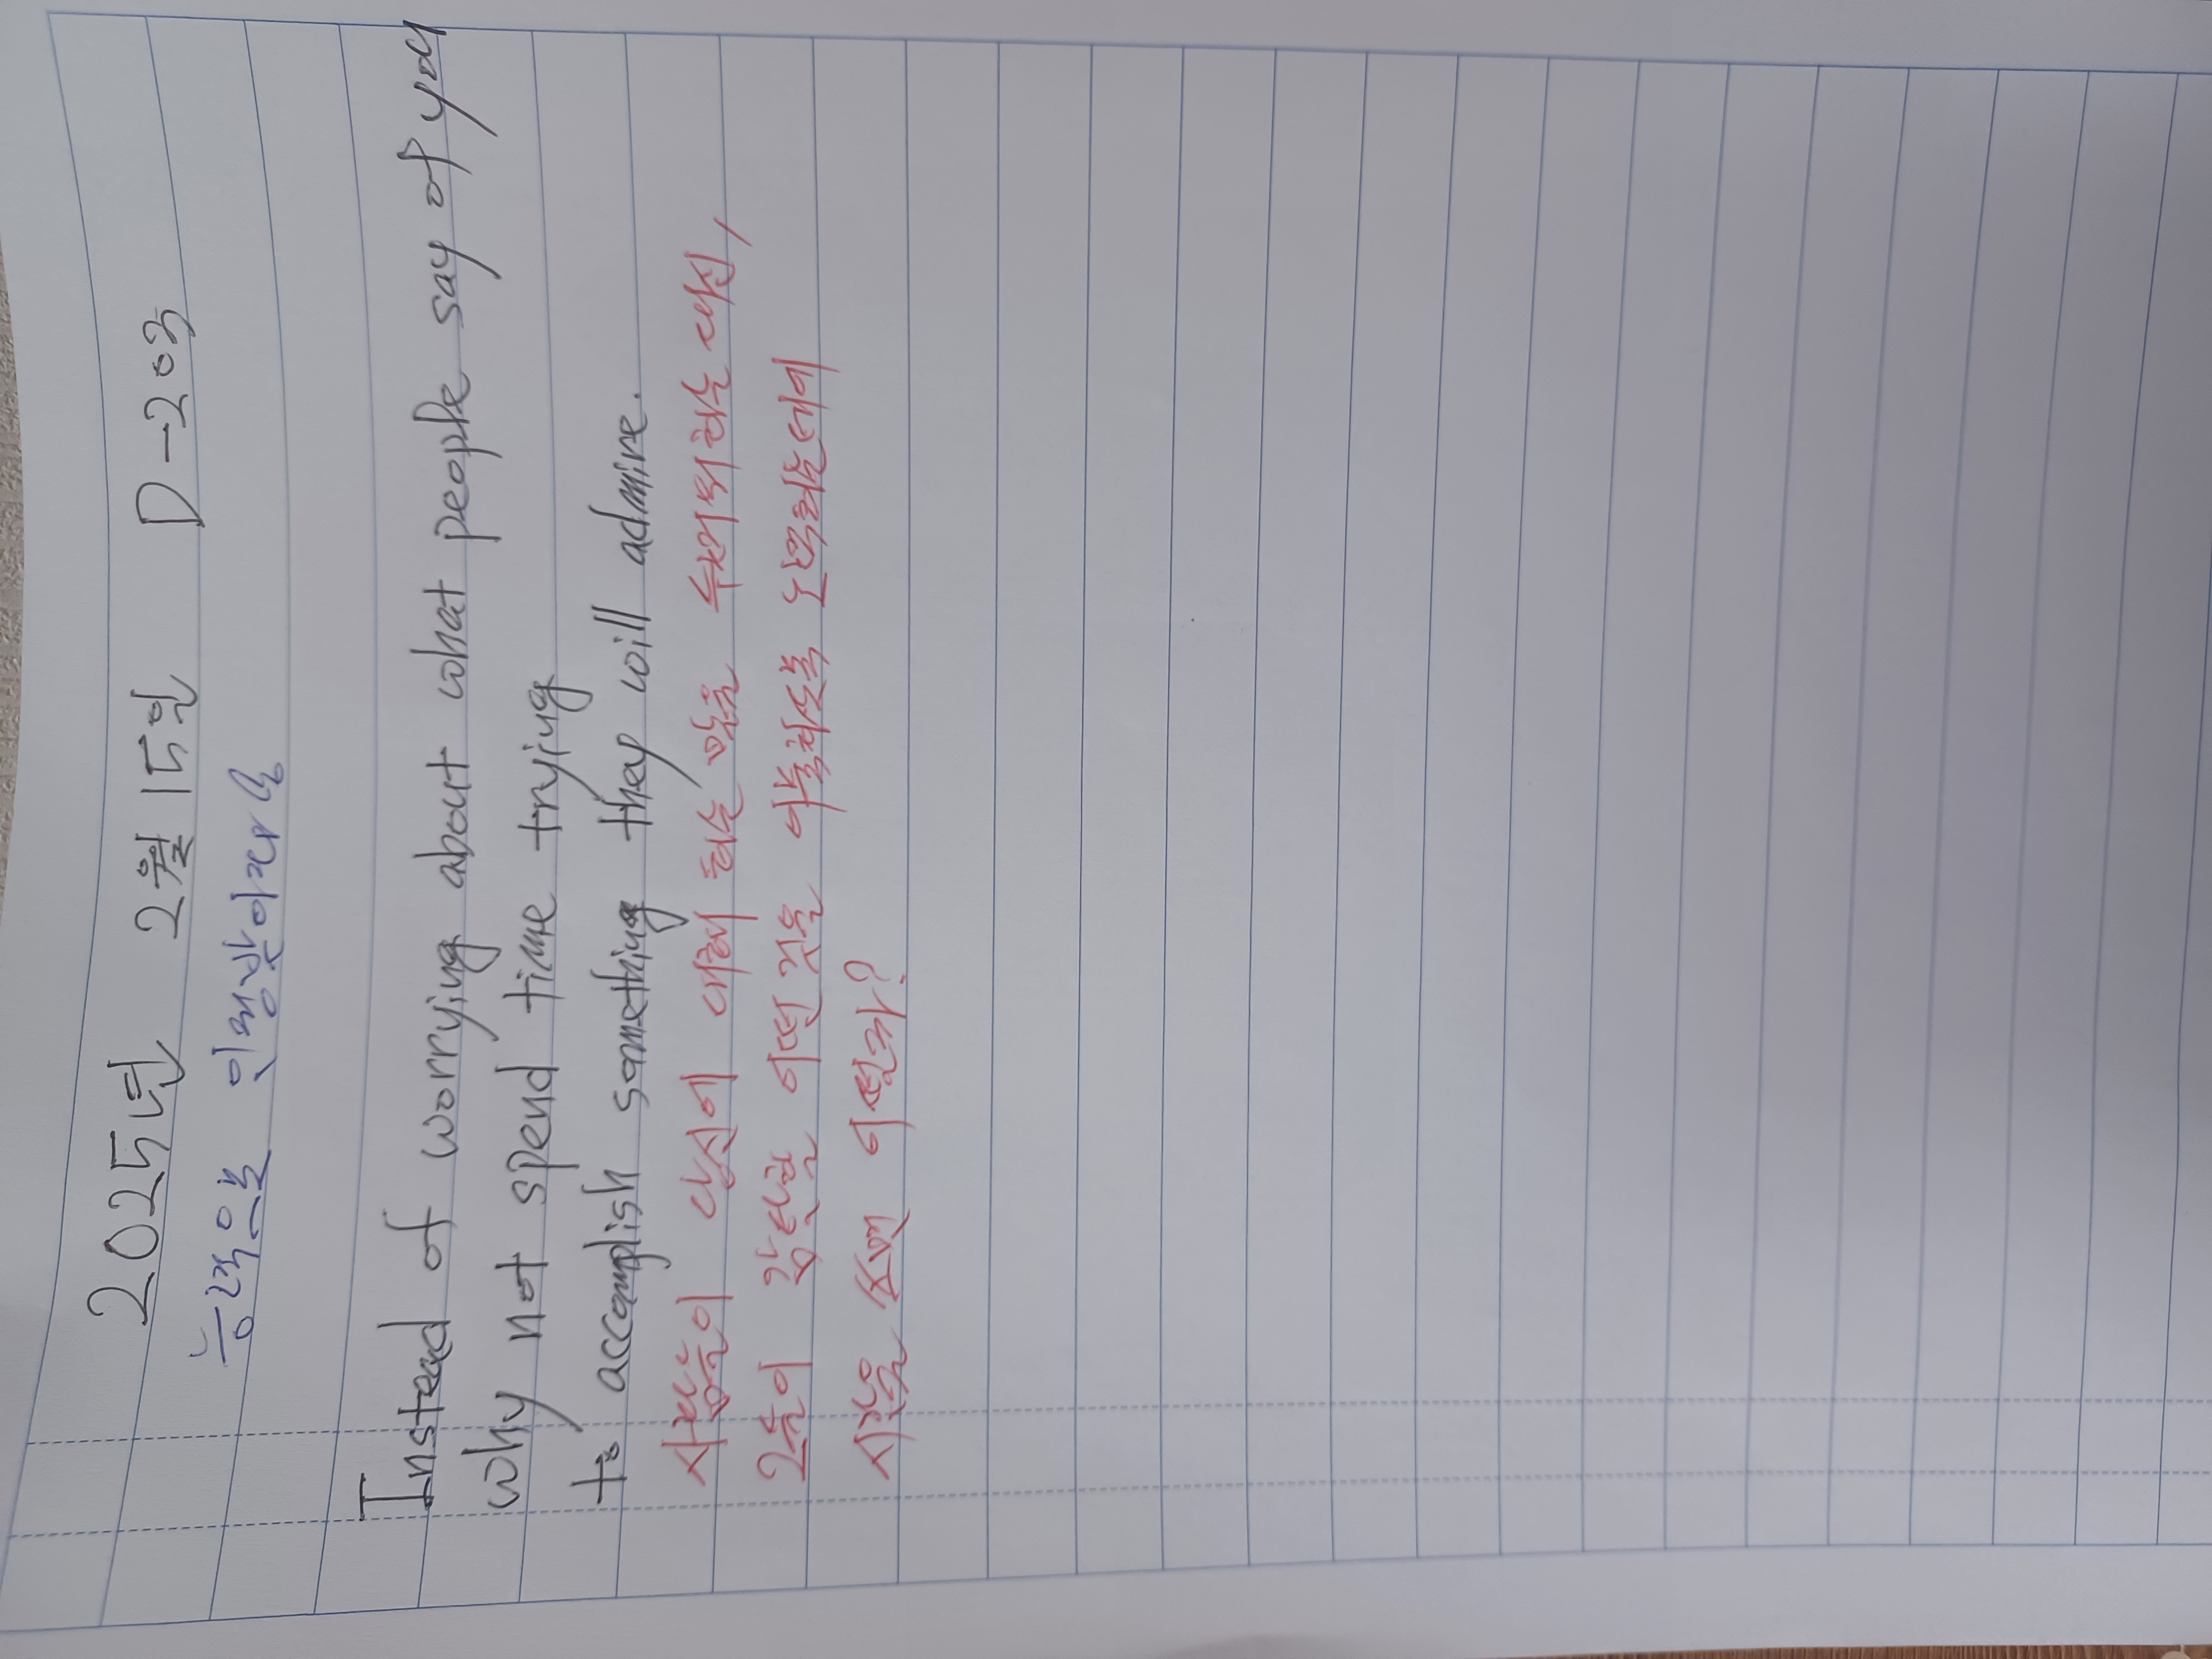 2025년 2월 15일 D-203
능력으로 인정받아라
Instead of worrying about what people say of you
why not spend time trying
to accomplish something they will admire.
사람들이 당신에 대해 하는 말을 두려워하는 대신,
그들이 감탄할 어떤 것을 이룩하도록 노력하는데에
시간을 쓰면 어떨까?